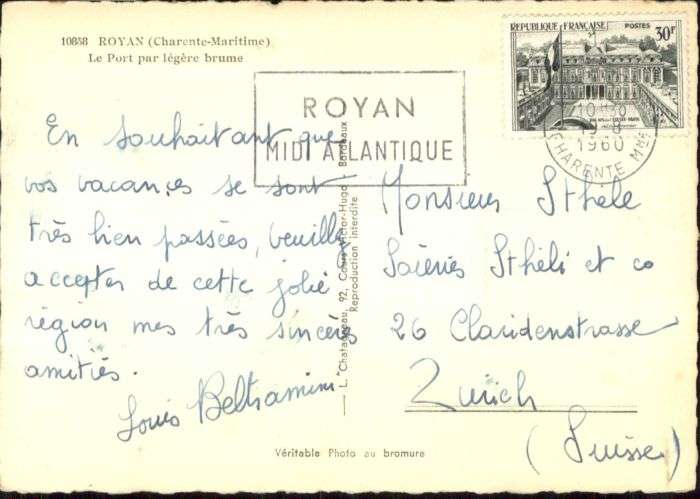 10858 ROYAN (Charente-Maritime)
Le Port par légère brume
REPUBLIQUE FRANÇAISE
POSTES
30F
ROYAN
MIDI ATLANTIQUE
1960
CHARENTE Mme
En souhaitant que
vos vacances se sont
très bien passées, veuillez
accepter de cette jolie
région mes très sincères
amitiés.
Louis Beltramini
L. Chatagneau, 92, Cours Victor-Hugo - Bordeaux
Reproduction interdite
Monsieur Sthele
Soieries Stheli et co
26 Claridenstrasse
Zurich
(Suisse)
Véritable Photo au bromure